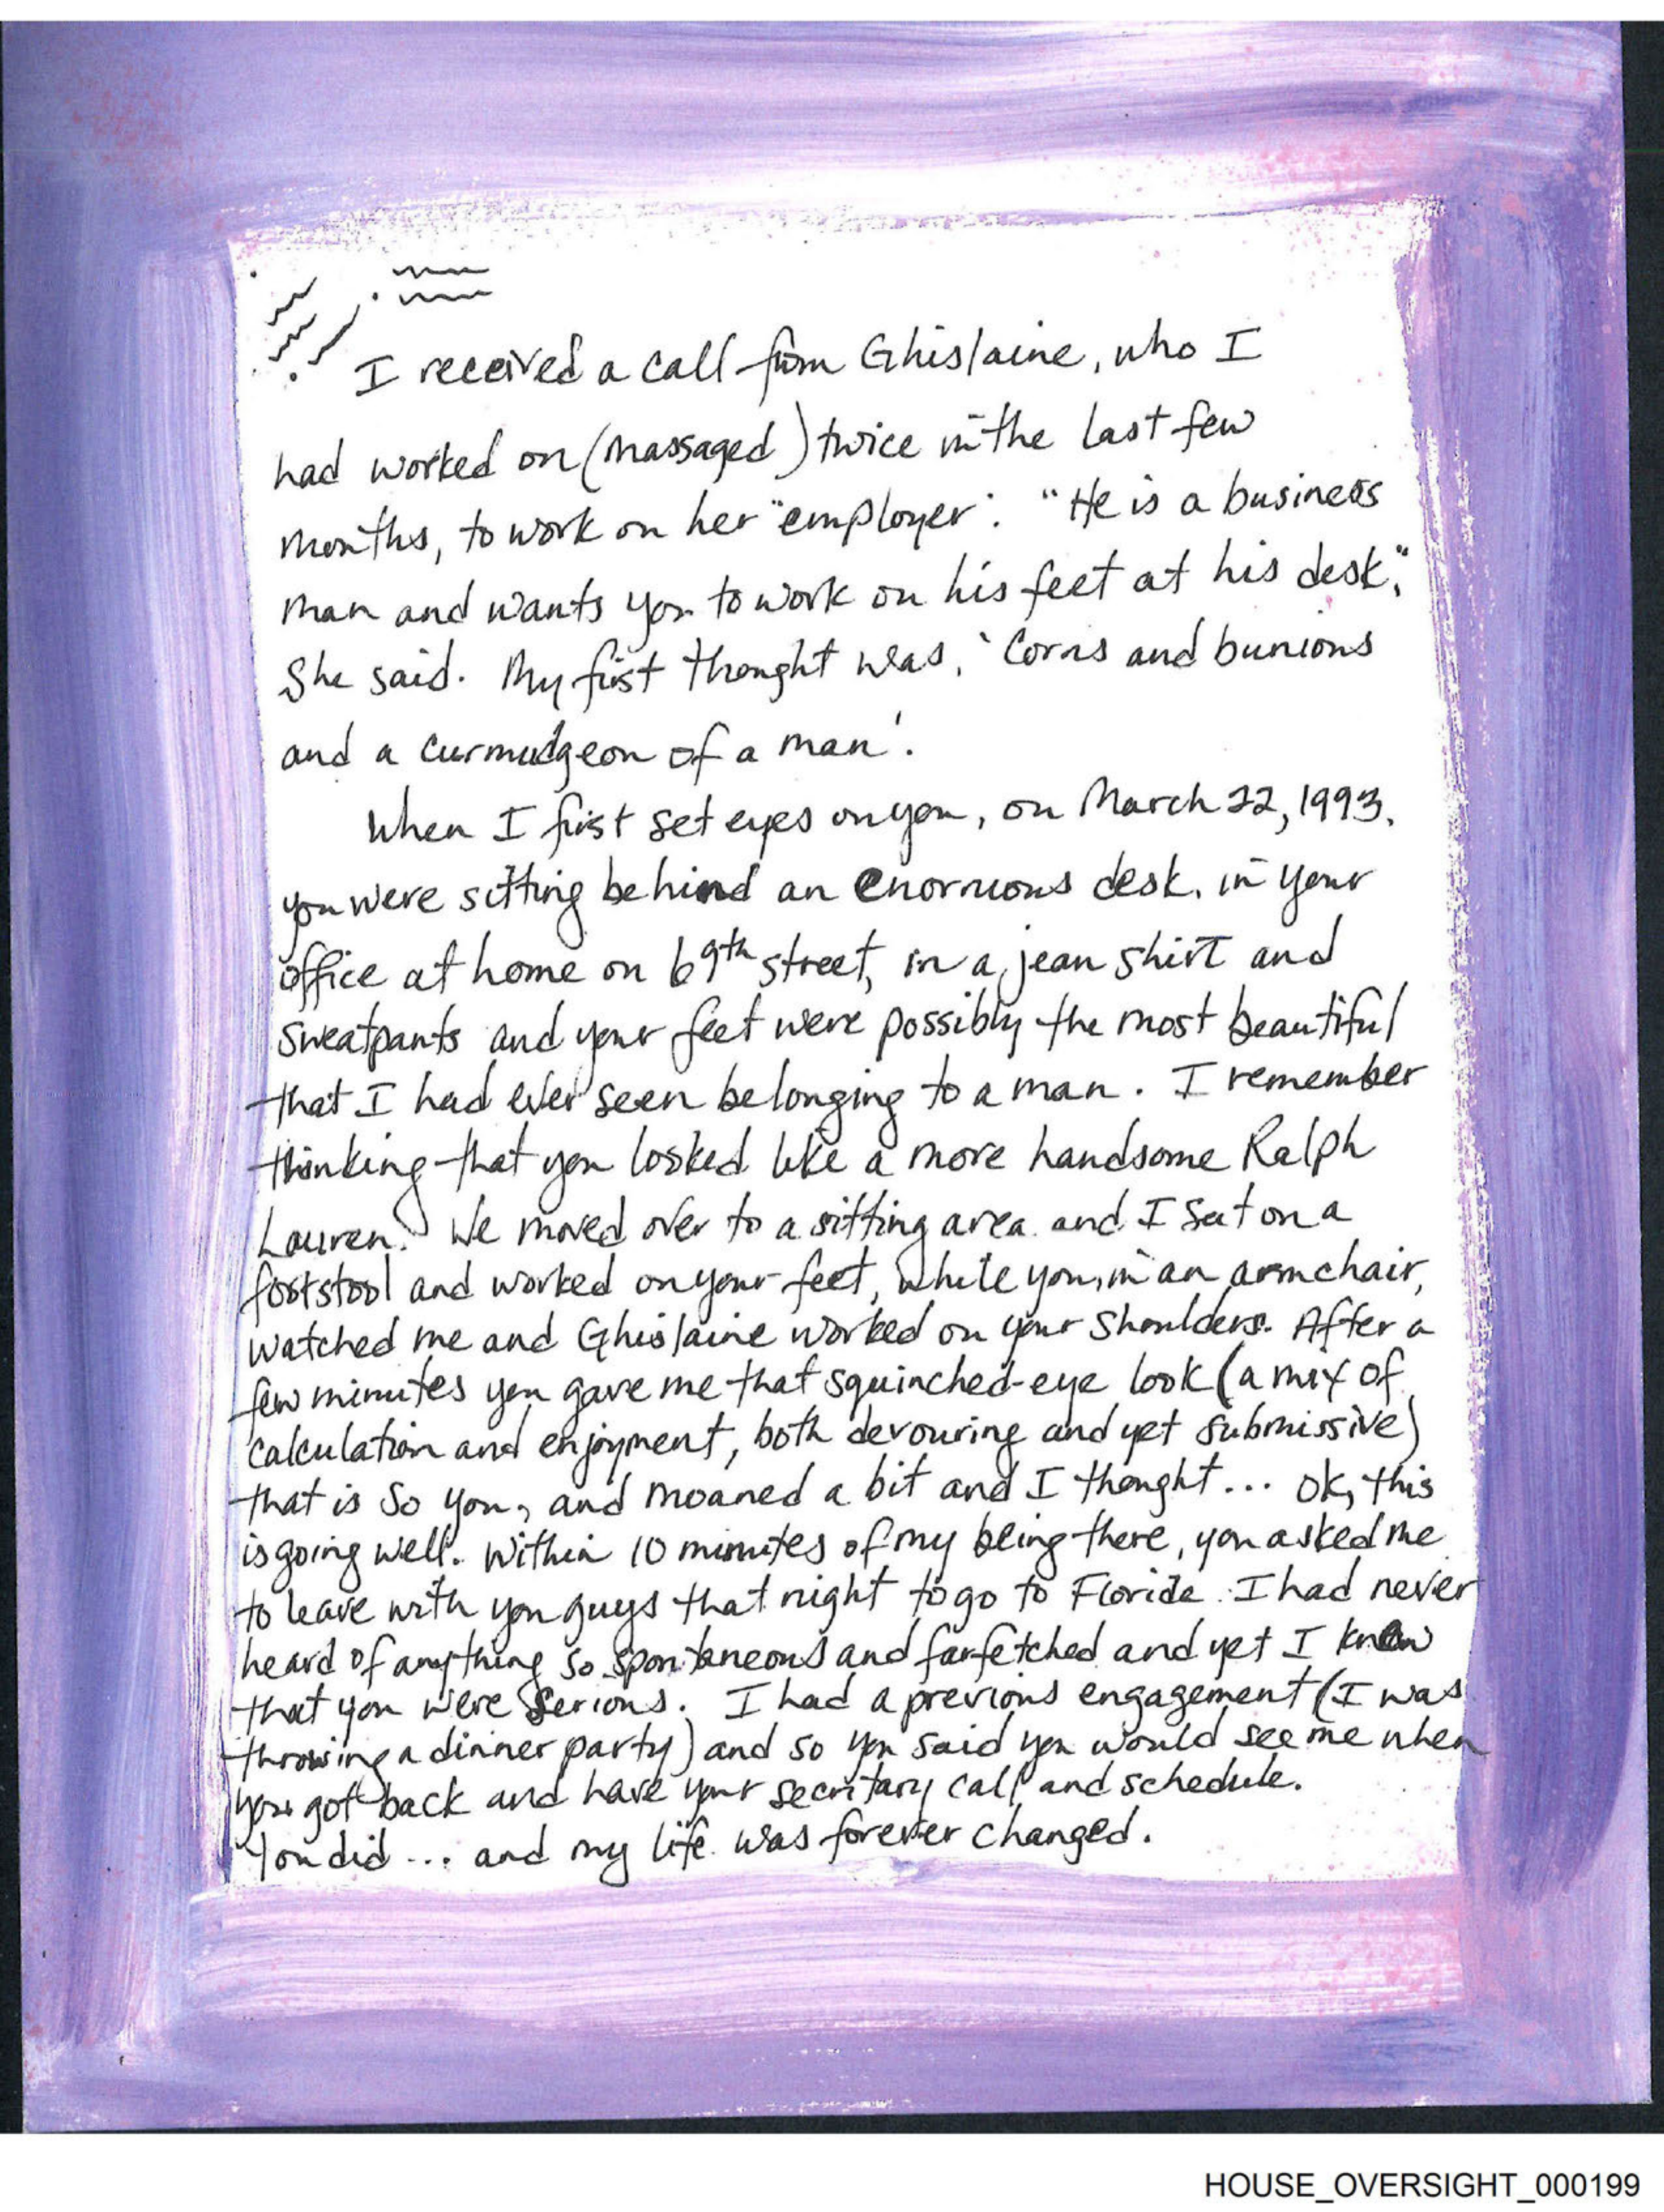 I received a call from Ghislaine, who I
had worked on (massaged) twice in the last few
months, to work on her "employer". "He is a business
man and wants you to work on his feet at his desk,"
she said. My first thought was, 'Corns and bunions
and a curmudgeon of a man'.
When I first set eyes on you, on March 22, 1993,
you were sitting behind an enormous desk, in your
office at home on 69th street, in a jean shirt and
sweatpants and your feet were possibly the most beautiful
that I had ever seen belonging to a man. I remember
thinking that you looked like a more handsome Ralph
Lauren. We moved over to a sitting area and I sat on a
footstool and worked on your feet, while you, in an armchair,
watched me and Ghislaine worked on your shoulders. After a
few minutes you gave me that squinched-eye look (a mix of
calculation and enjoyment, both devouring and yet submissive)
that is so you, and moaned a bit and I thought... ok, this
is going well. Within 10 minutes of my being there, you asked me
to leave with you guys that night to go to Florida. I had never
heard of anything so spontaneous and farfetched and yet I knew
that you were serious. I had a previous engagement (I was
throwing a dinner party) and so you said you would see me when
you got back and have your secritary call and schedule.
You did ... and my life was forever changed.
HOUSE_OVERSIGHT_000199